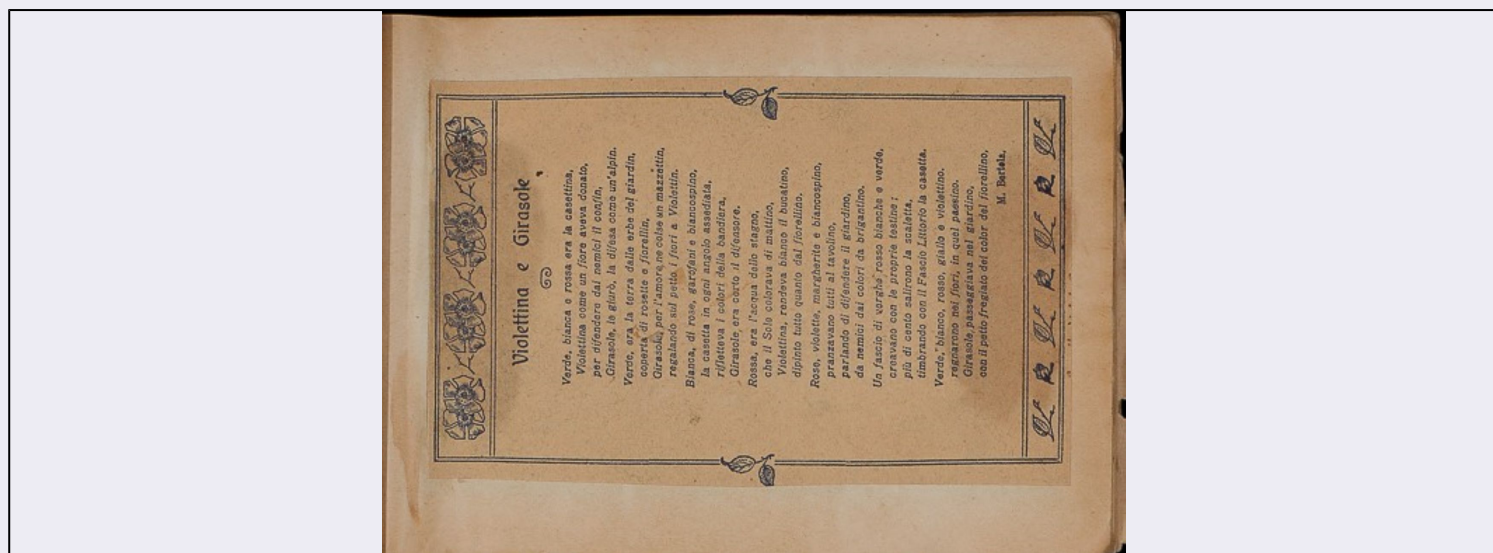 Violettina e Girasole
Verde, bianca e rossa era la casettina,
Violettina come un fiore aveva donato,
per difendere dai nemici il confin,
Girasole, le giurò, la difesa come un'alpin.
Verde, era la terra dalle erbe del giardin,
coperta di rosette e fiorellin,
Girasole, per l'amore ne colse un mazzettin,
regalando sul petto i fiori a Violettin.
Bianca, di rose, garofani e biancospino,
la casetta in ogni angolo assediata,
rifletteva i colori della bandiera,
Girasole era certo il difensore.
Rossa, era l'acqua dello stagno,
che il Sole colorava di mattino,
Violettina, rendeva bianco il bucatino,
dipinto tutto quanto dal fiorellino.
Rose, violette, margherite e biancospino,
pranzavano tutti al tavolino,
parlando di difendere il giardino,
da nemici dai colori da brigantino.
Un fascio di verghe rosso bianche e verde,
creavano con le proprie testine;
più di cento salirono la scaletta,
timbrando con il Fascio Littorio la casetta.
Verde, bianco, rosso, giallo e violettino.
regnarono nei fiori, in quel paesino.
Girasole, passeggiava nel giardino,
con il petto fregiato dei color del fiorellino,
M. Bertola.